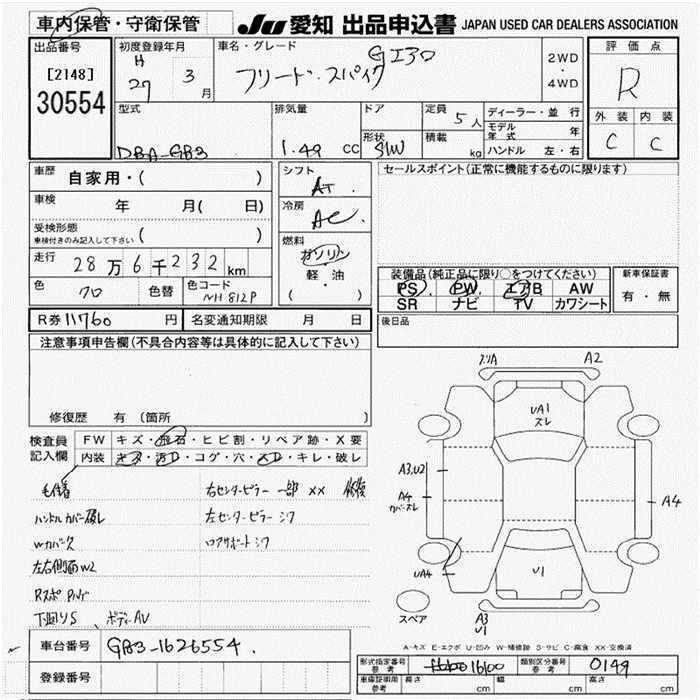 車内保管・守衛保管
JU 愛知 出品申込書 JAPAN USED CAR DEALERS ASSOCIATION
出品番号
[2148]
30554
初度登録年月
H
27 3月
車名・グレード
フリード・スパイク GI30
2WD
・
4WD
評価点
R
外装 内装
C C
型式
DBA-GB3
排気量
1.49 cc
ドア
形状
SW
定員 5人
積載 kg
ディーラー・並行
モデル年式 年
ハンドル 左・右
車歴
自家用・( )
車検
年 月( 日)
受検形態
車検付きのみ記入して下さい ( )
走行
28万6千232km
色 クロ 色替 色コード NH812P
シフト
AT
冷房
AC
燃料
ガソリン
・
軽・油
( )
セールスポイント(正常に機能するものに限ります)
装備品(純正品に限り○をつけてください)
PS PW エアB AW
SR ナビ TV カワシート
新車保証書
有・無
R券 11760 円 名変通知期限 月 日
後日品
注意事項申告欄(不具合内容等は具体的に記入して下さい)
修復歴 有(箇所
検査員記入欄
FW キズ・飛石・ヒビ割・リペア跡・X要
内装 キズ・汚レ・コゲ・穴・スレ・キレ・破レ
毛付着 右センターピラー 一部 XX 修復
ハンドルカバー破レ 左センターピラー シワ
Wカバーズ ロアサポート シワ
左右側面W2
下回りS、ボディーAV
車台番号 GB3-1626554.
登録番号
ズリA A2
UA1
スレ
A3,U2
A4
カバースレ
A4
UA4
U1
スペア
A3
U1
A-キズ E-エクボ U-凹み W-補修跡 S-サビ C-腐食 XX-交換済
形式指定番号 参考 16100 類別区分番号 参考 0149
車庫証明用 参考 長さ cm 幅 cm 高さ cm